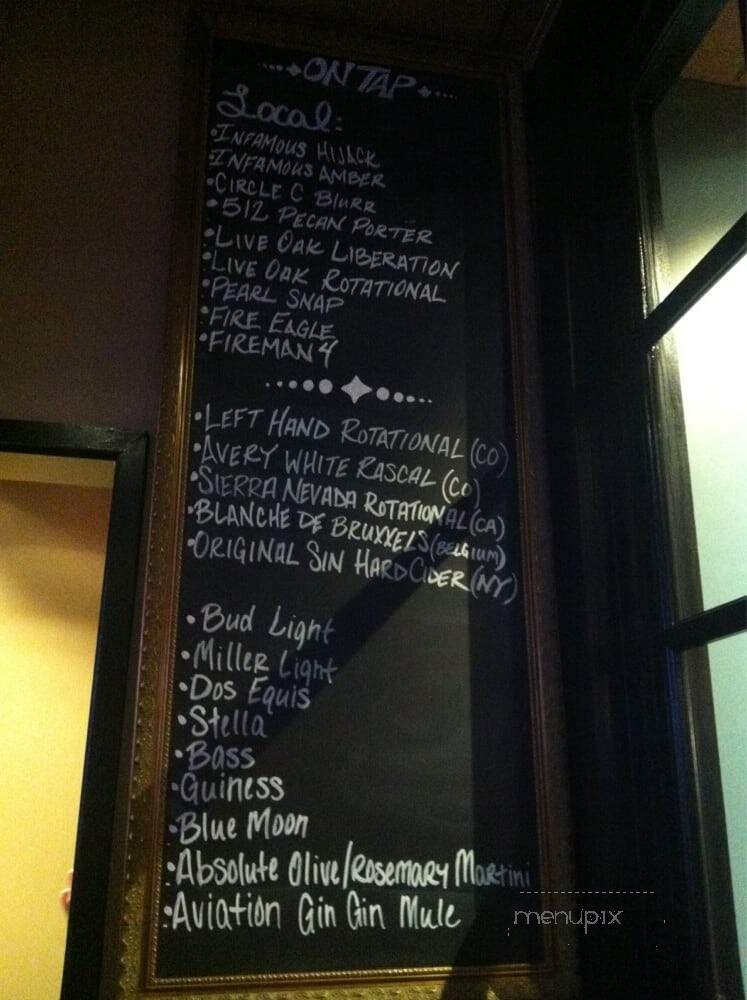 ON TAP
Local:
•INFAMOUS HIJACK
•INFAMOUS AMBER
•CIRCLE C BLURR
•512 PECAN PORTER
•LIVE OAK LIBERATION
•LIVE OAK ROTATIONAL
•PEARL SNAP
•FIRE EAGLE
•FIREMAN 4
•LEFT HAND ROTATIONAL (CO)
•AVERY WHITE RASCAL (CO)
•SIERRA NEVADA ROTATIONAL (CA)
•BLANCHE DE BRUXXELS (BELGIUM)
•ORIGINAL SIN HARD CIDER (NY)
•Bud Light
•Miller Light
•Dos Equis
•Stella
•Bass
•Guiness
•Blue Moon
•Absolute Olive/Rosemary Martini
•Aviation Gin Gin Mule
menupix